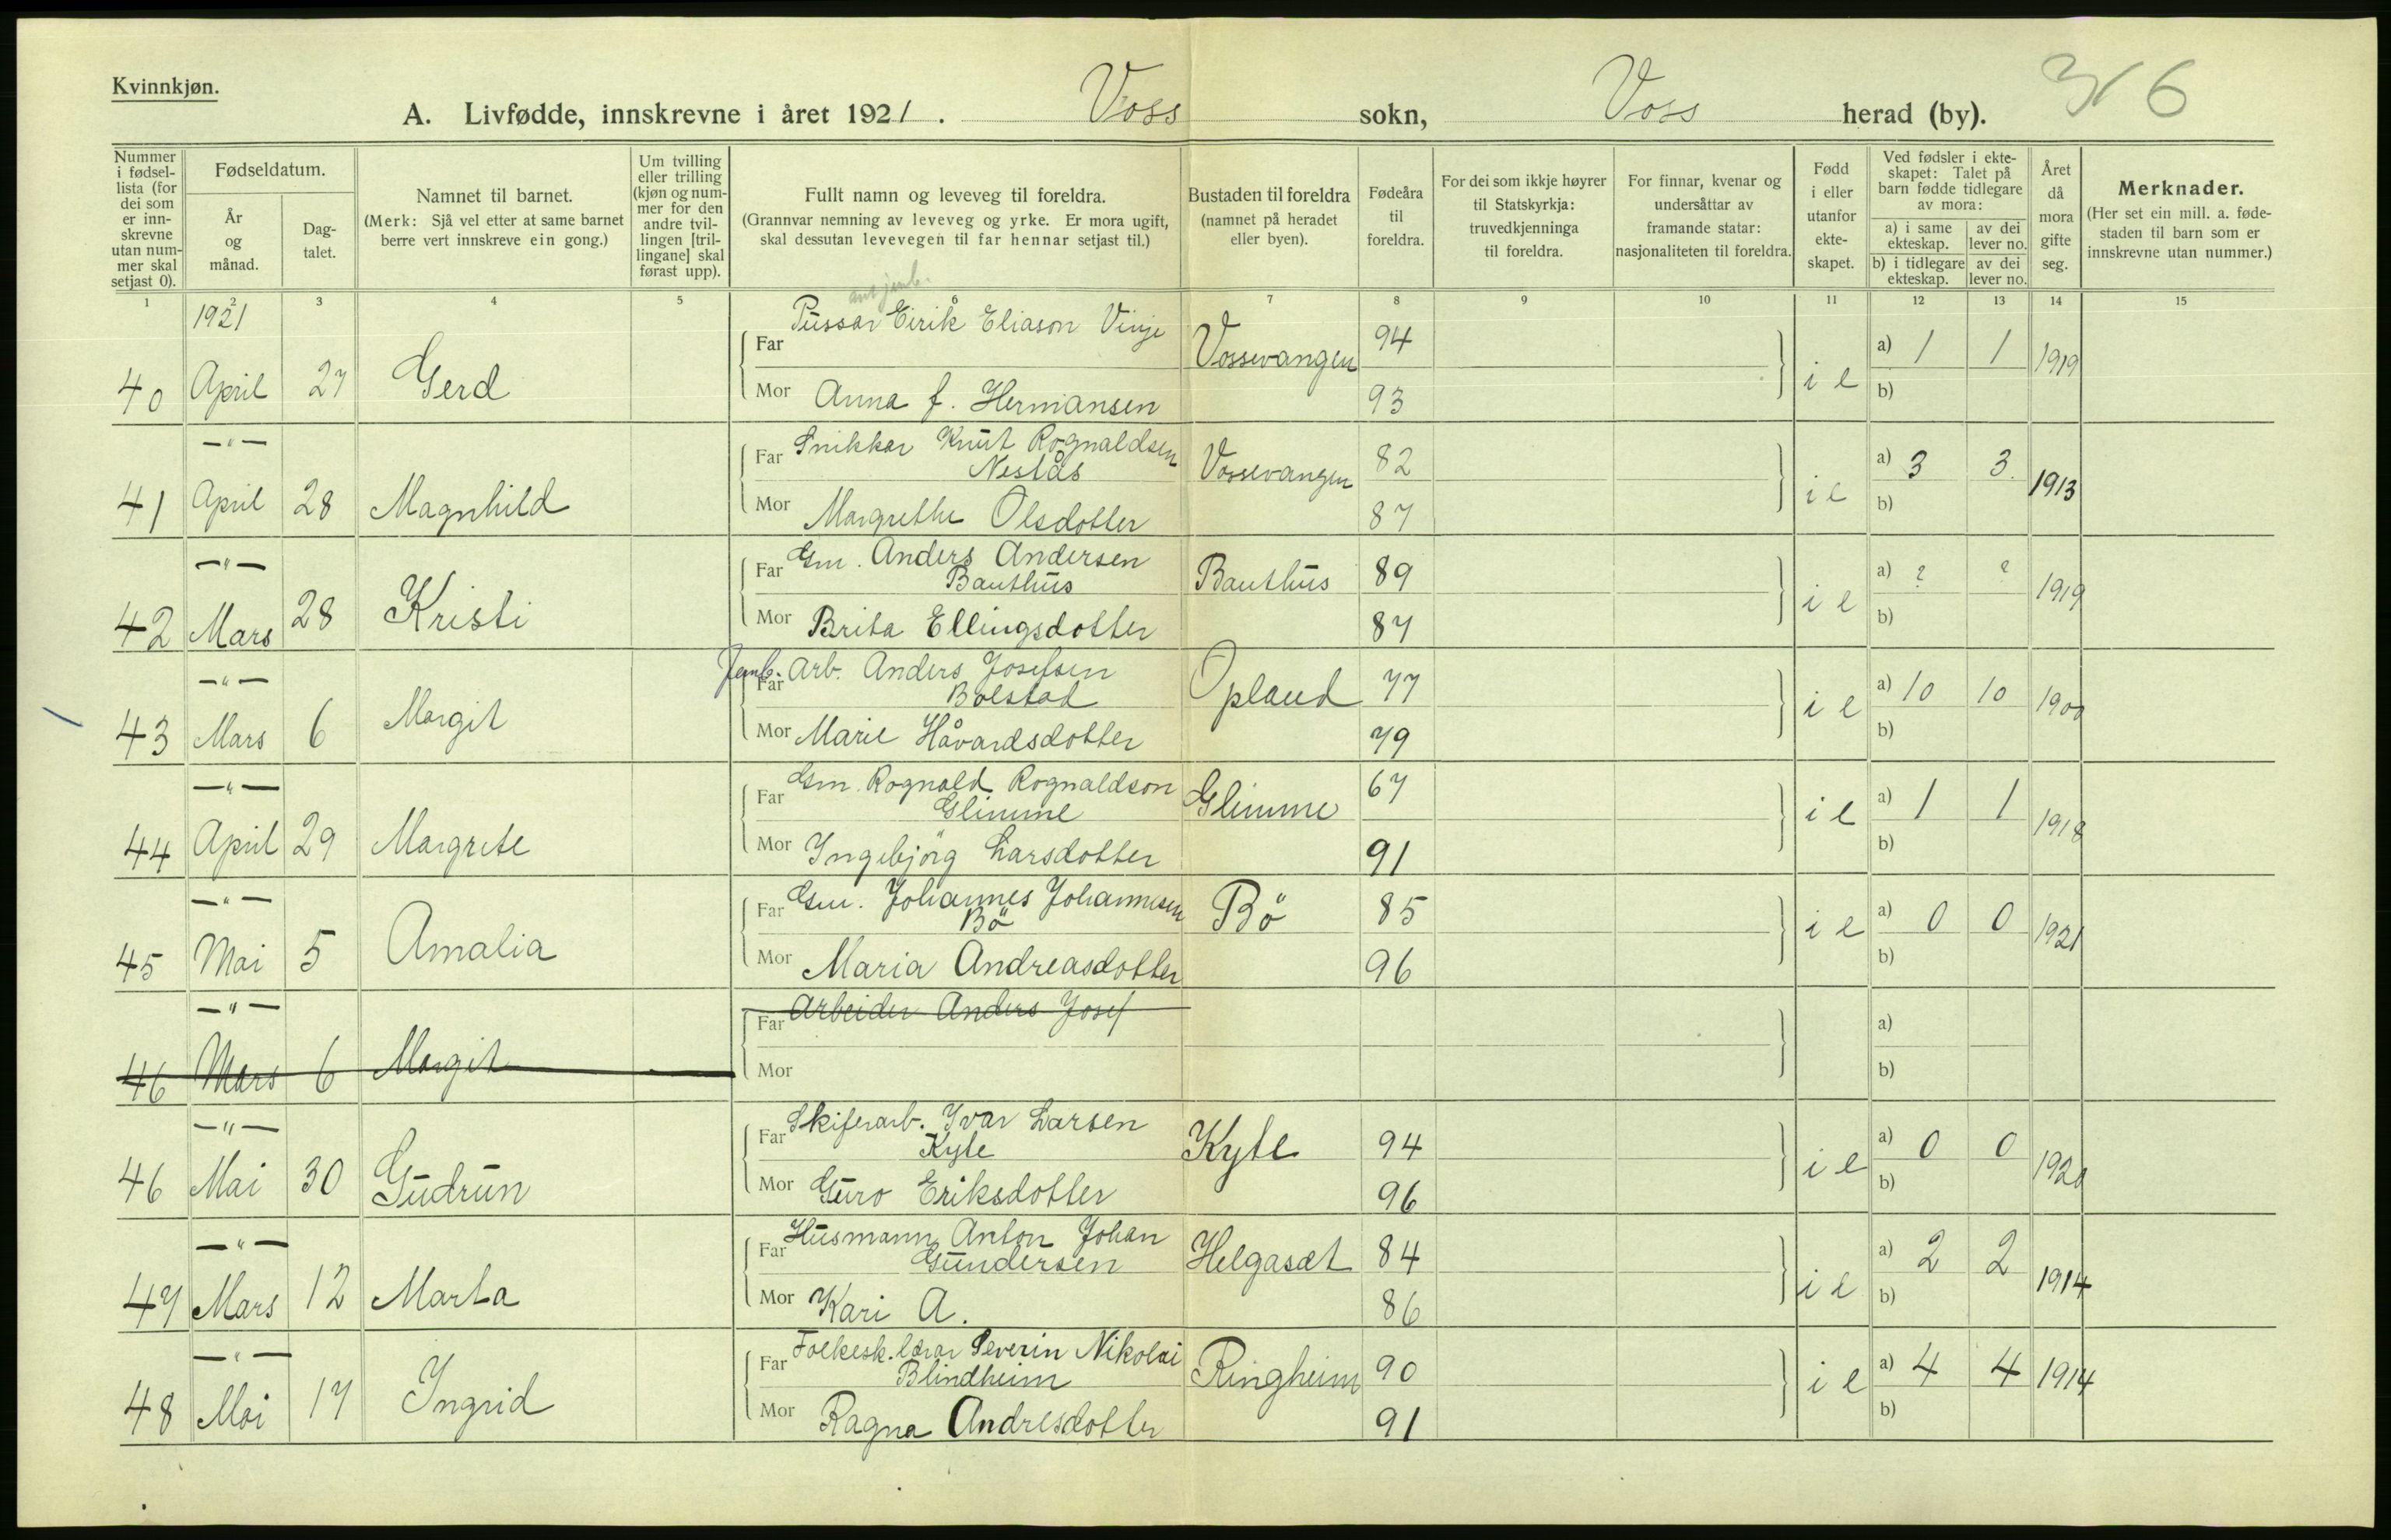 Kvinnkjøn.
316
A. Livfødde, innskrevne i året 1921. Voss sokn, Voss herad (by).
Nummer i fødsel-lista (for dei som er inn-skrevne utan num-mer skal setjast 0).
Fødseldatum.
År og månad.
Dag-talet.
Namnet til barnet.
(Merk: Sjå vel etter at same barnet berre vert innskreve ein gong.)
Um tvilling eller trilling (kjøn og num-mer for den andre tvil-lingen [tril-lingane] skal førast upp).
Fullt namn og leveveg til foreldra.
(Grannvar nemning av leveveg og yrke. Er mora ugift, skal dessutan levevegen til far hennar setjast til.)
Bustaden til foreldra
(namnet på heradet eller byen).
Fødeåra til foreldra.
For dei som ikkje høyrer til Statskyrkja: truvedkjenninga til foreldra.
For finnar, kvenar og undersåttar av framande statar: nasjonaliteten til foreldra.
Fødd i eller utanfor ekte-skapet.
Ved fødsler i ekte-skapet: Talet på barn fødde tidlegare av mora:
a) i same ekteskap. av dei lever no.
b) i tidlegare ekteskap. av dei lever no.
Året då mora gifte seg.
Merknader.
(Her set ein mill. a. føde-staden til barn som er innskrevne utan nummer.)
1 2 3 4 5 6 7 8 9 10 11 12 13 14 15
1921
Far Pussar Eirik Eliason Vinje Vossevangen 94 a) 1 1 1919
40 April 27 Gerd Mor Anna f. Hermansen 93 i e b)
—"— Far Snikkar Knut Rognaldsen Vossevangen 82 a) 3 3 1913
Nestås
41 April 28 Magnhild Mor Margrethe Olsdotter 87 i e b)
—"— Far Gm. Anders Andersen Bauthus 89 a) ? ? 1919
Bauthus
42 Mars 28 Kristi Mor Brita Ellingsdotter 87 i e b)
—"— Far Jernb. Arb. Anders Josefsen Opland 77 a) 10 10 1900
Bolstad
43 Mars 6 Margit Mor Marie Håvardsdotter 79 i e b)
—"— Far Gm. Rognald Rognaldson Glimme 67 a) 1 1 1918
Glimme
44 April 29 Margrete Mor Ingebjörg Larsdotter 91 i e b)
—"— Far Gm. Johannes Johannesen Bö 85 a) 0 0 1921
Bö
45 Mai 5 Amalia Mor Maria Andreasdotter 96 i e b)
—"— Far Arbeider Anders Josef a)
46 Mars 6 Margit Mor b)
—"— Far Skiferarb. Ivar Larsen Kyte 94 a) 0 0 1920
Kyte
46 Mai 30 Gudrun Mor Guro Eriksdotter 96 i e b)
—"— Far Husmann Anton Johan Helgaset 84 a) 2 2 1914
Gundersen
47 Mars 12 Marta Mor Kari A. 86 i e b)
—"— Far Folkesk. lærar Severin Nikolai Ringheim 90 a) 4 4 1914
Blindheim
48 Mai 17 Ingrid Mor Ragna Andresdotter 91 i e b)